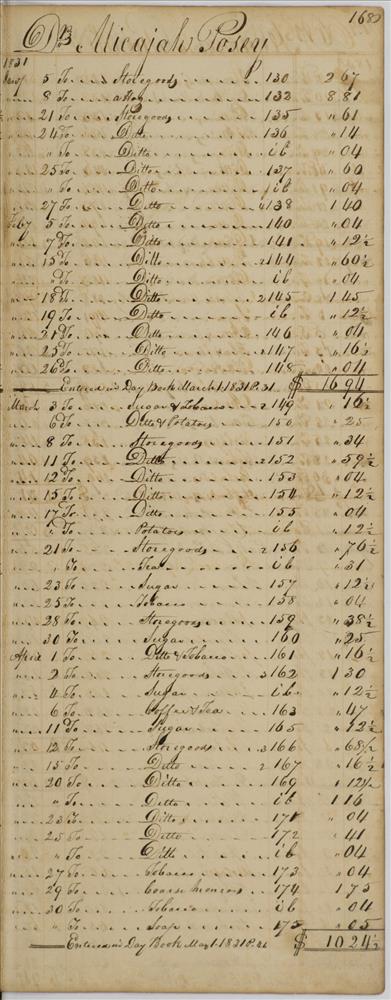 168
Dr Micajah Posey
1831
5 To Storegoods 130 2 67
" 8 To 132 8.81
" 21 To Storegoods 135 " 61
" 24 To Ditto 136 " 14
" " To Ditto ib " 04
" 25 To Ditto 137 " 60
" " To Ditto ib " 04
" 27 To Ditto 138 1 40
Feby 5 To Ditto 140 " 04
" 7 To Ditto 141 " 12½
" 15 To Ditto 144 " 60½
" " To Ditto ib " 04
" 18 To Ditto 145 1 45
" 19 To Ditto ib " 12½
" 21 To Ditto 146 " 04
" 25 To Ditto 147 " 16½
" 26 To Ditto 148 " 04
Entered in Day Book March 1. 1831 P. 31 $ 16 94
March 3 To Sugar & Tobacco 149 " 16½
" 6 To Ditto & Potatoes 150 " 25
" 8 To Storegoods 151 " 34
" 11 To Ditto 152 " 59½
" 12 To Ditto 153 " 04
" 15 To Ditto 154 " 12½
" 17 To Ditto 155 " 04
" " To Potatoes ib " 12½
" 21 To Storegoods 156 " 76½
" " To Tea ib " 31
" 23 To Sugar 157 " 12½
" 25 To Tobacco 158 " 04
" 28 To Storegoods 159 " 38½
" 30 To Sugar 160 " 25
April 1 To Ditto & Tobacco 161 " 16½
" 2 To Storegoods 162 1 30
" 4 To Sugar ib " 12½
" 6 To Coffee & Tea 163 " 47
" 11 To Sugar 165 " 12½
" 12 To Storegoods 166 " 68½
" 15 To Ditto 167 " 16½
" 20 To Ditto 169 " 12½
" " To Ditto ib 1 16
" 23 To Ditto 171 " 04
" 25 To Ditto 172 " 41
" " To Ditto ib " 04
" 27 To Tobacco 173 " 04
" 29 To Coarse 174 1 75
" 30 To Tobacco ib " 04
" " To Soap 175 " 05
Entered in Day Book May 1. 1831 P. 46 $ 10 24½